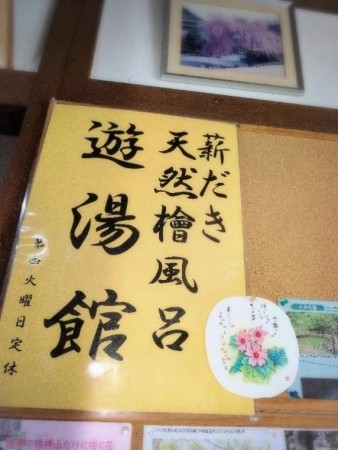 薪だき
天然檜風呂
遊湯館
第四火曜日定休